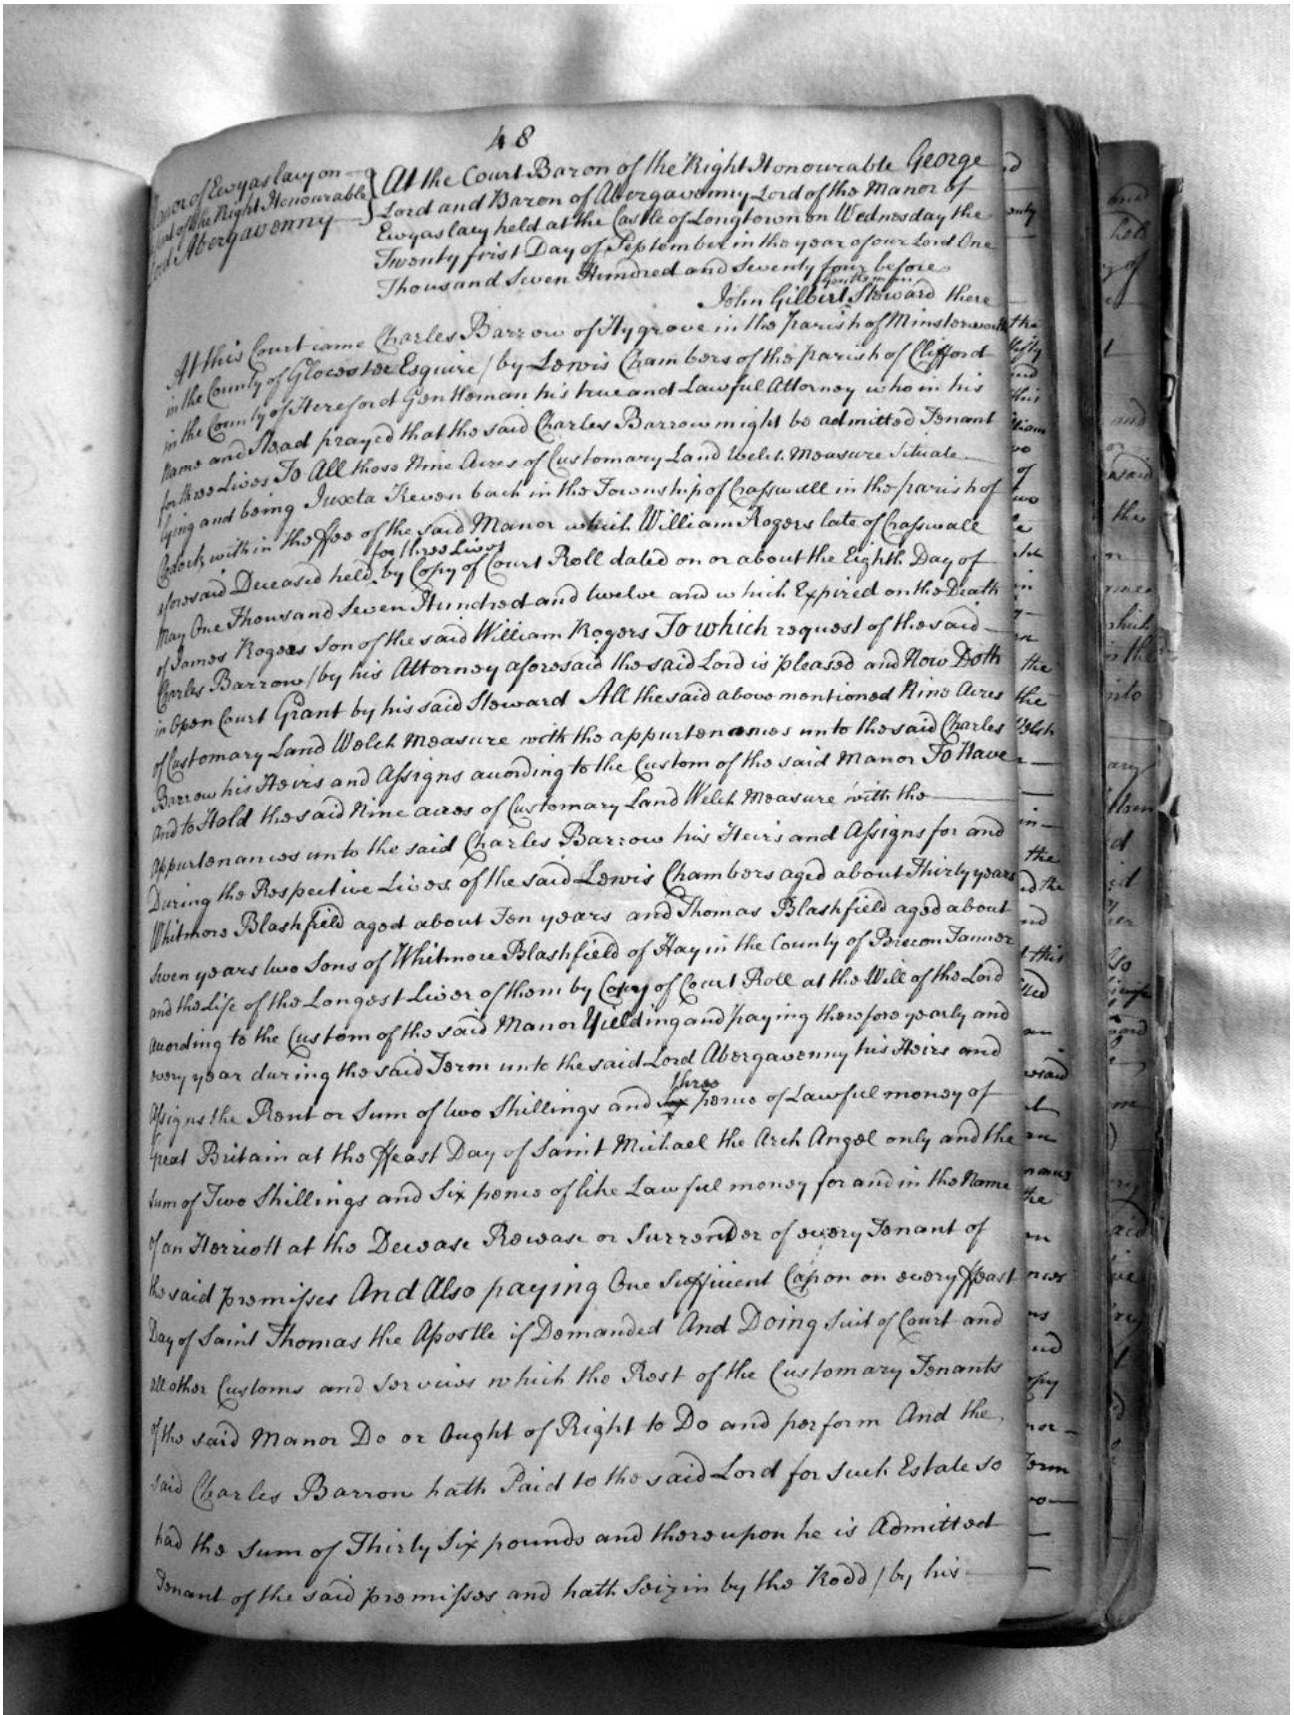 48
Manor of Ewyaslacy on
part of the Right Honourable
Lord Abergavenny
At the Court Baron of the Right Honourable George
Lord and Baron of Abergavenny Lord of the Manor of
Ewyaslacy held at the Castle of Longtown on Wednesday the
Twenty first Day of September in the year of our Lord One
Thousand Seven Hundred and Seventy four before
John Gilbert Gentleman Steward there
At this Court came Charles Barrow of Hygrove in the parish of Minsterworth
in the County of Glocester Esquire / by Lewis Chambers of the parish of Clifford
in the County of Hereford Gentleman his true and Lawful Attorney who in his
name and Stead prayed that the said Charles Barrow might be admitted Tenant
for three Lives To All those Nine Acres of Customary Land Welch Measure Situate
lying and being Juxta Keven bach in the Township of Crasswall in the parish of
Clodock within the ffee of the said Manor which William Rogers late of Crasswall
aforesaid Deceased held for three Lives by Copy of Court Roll dated on or about the Eighth Day of
May One Thousand Seven Hundred and twelve and which Expired on the Death
of James Rogers Son of the said William Rogers To which request of the said
Charles Barrow / by his Attorney aforesaid the said Lord is pleased and Now Doth
in Open Court Grant by his said Steward All the said above mentioned Nine Acres
of Customary Land Welch Measure with the appurtenances unto the said Charles
Barrow his Heirs and Assigns according to the Custom of the said Manor To Have
and to Hold the said Nine acres of Customary Land Welch Measure with the
appurtenances unto the said Charles Barrow his Heirs and Assigns for and
During the Respective Lives of the said Lewis Chambers aged about Thirty years
Whitmore Blashfield aged about Ten years and Thomas Blashfield aged about
Seven years two Sons of Whitmore Blashfield of Hay in the County of Brecon Tanner
and the Life of the Longest Liver of them by Copy of Court Roll at the Will of the Lord
according to the Custom of the said Manor Yielding and paying therefore yearly and
every year during the said Term unto the said Lord Abergavenny his Heirs and
Assigns the Rent or Sum of two Shillings and three pence of Lawful money of
Great Britain at the ffeast Day of Saint Michael the Arch Angel only and the
Sum of Two Shillings and Six pence of like Lawful money for and in the Name
of an Herriott at the Decease Rewase or Surrender of every Tenant of
the said premisses And Also paying One Sufficient Capon on every ffeast
Day of Saint Thomas the Apostle if Demanded And Doing Suit of Court and
all other Customs and Services which the Rest of the Customary Tenants
of the said Manor Do or Ought of Right to Do and perform And the
said Charles Barrow hath Paid to the said Lord for such Estate so
had the Sum of Thirty Six pounds and thereupon he is Admitted
Tenant of the said premisses and hath Seizin by the Rodd / by his